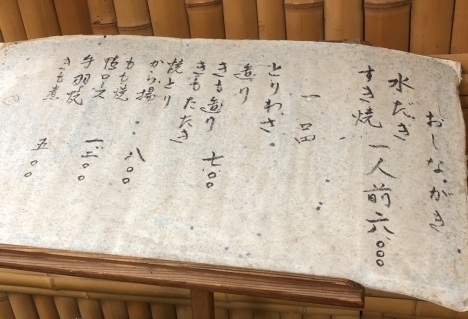 おしながき
水だき
すき焼 一人前六、〇〇〇
一品
とりわさ
造り
きも造り 七〇〇
きもたたき
焼とり
から揚
もも焼 八〇〇
ロース
手羽焼
きも煮 五〇〇